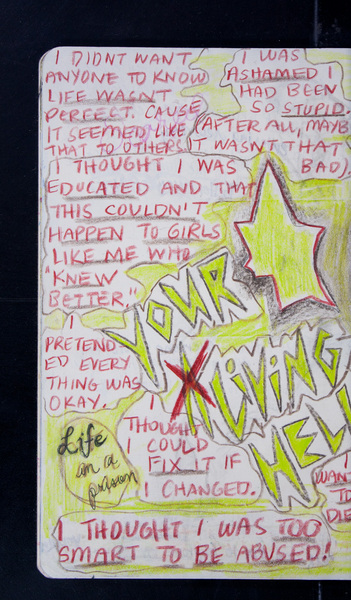 I DIDNT WANT
ANYONE TO KNOW
LIFE WASN'T
PERFECT. CAUSE
IT SEEMED LIKE
THAT TO OTHERS.
I WAS
ASHAMED I
HAD BEEN
SO STUPID.
(AFTER ALL, MAYB
IT WASN'T THAT
BAD)
I THOUGHT I WAS
EDUCATED AND THAT
THIS COULDN'T
HAPPEN TO GIRLS
LIKE ME WHO
"KNEW
BETTER."
YOUR
LIVING
HELL
I
PRETEND
ED EVERY
THING WAS
OKAY.
Life
in a
prison
I
THOUGHT
I COULD
FIX IT IF
I CHANGED.
I
WAN
TO
DIE
I THOUGHT I WAS TOO
SMART TO BE ABUSED!